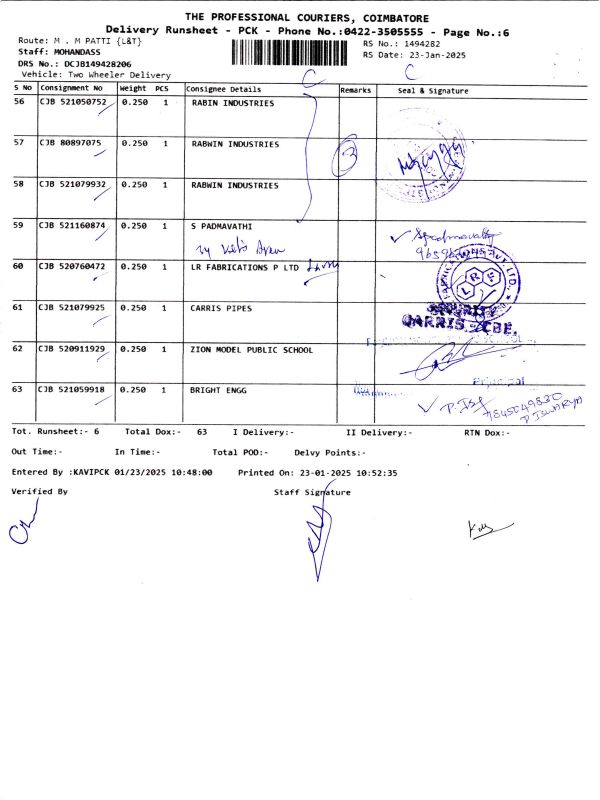 THE PROFESSIONAL COURIERS, COIMBATORE
Delivery Runsheet - PCK - Phone No.:0422-3505555 - Page No.:6
Route: M . M PATTI {L&T}
RS No.: 1494282
Staff: MOHANDASS
RS Date: 23-Jan-2025
DRS No.: DCJB149428206
Vehicle: Two Wheeler Delivery
C C
S No Consignment No Weight PCS Consignee Details Remarks Seal & Signature
56 CJB 521050752 0.250 1 RABIN INDUSTRIES
57 CJB 80897075 0.250 1 RABWIN INDUSTRIES
3
58 CJB 521079932 0.250 1 RABWIN INDUSTRIES
59 CJB 521160874 0.250 1 S PADMAVATHI
60 CJB 520760472 0.250 1 LR FABRICATIONS P LTD
LRF
61 CJB 521079925 0.250 1 CARRIS PIPES
SECURITY
CARRIS CBE.
62 CJB 520911929 0.250 1 ZION MODEL PUBLIC SCHOOL
Principal
63 CJB 521059918 0.250 1 BRIGHT ENGG
Tot. Runsheet:- 6 Total Dox:- 63 I Delivery:- II Delivery:- RTN Dox:-
Out Time:- In Time:- Total POD:- Delvy Points:-
Entered By :KAVIPCK 01/23/2025 10:48:00 Printed On: 23-01-2025 10:52:35
Verified By Staff Signature